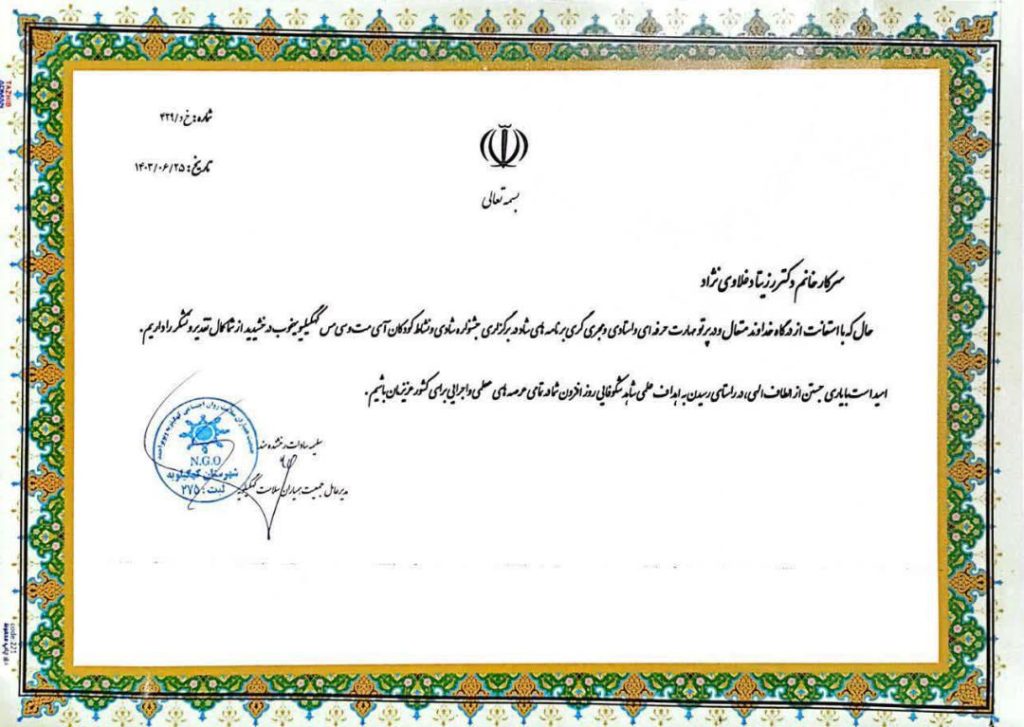 شماره: خ د/۴۲۹
تاریخ: ۱۴۰۳/۰۶/۲۵
بسمه تعالی
سرکار خانم دکتر رزیتا دخلاوی نژاد
حال که با استعانت از درگاه خداوند متعال و در پرتو مهارت حرفه ای و استادی و مجری گری برنامه های شاد در برگزاری جشنواره شادی و نشاط کودکان آسی مت و سی مس کهگیلویه خوب درخشیدید از شما کمال تقدیر و تشکر را داریم.
امید است با یاری جستن از الطاف الهی، در راستای رسیدن به اهداف علمی شاهد شکوفایی روز افزون شما در تمامی عرصه های علمی و اجرایی برای کشور عزیزمان باشیم.
سلیمه سادات رخشنده مند
مدیرعامل جمعیت همیاران سلامت کهگیلویه
جمعیت همیاران سلامت روان اجتماعی
N.G.O
شهرستان کهگیلویه
ثبت: ۲۷۵
TAZHIB
code: 271